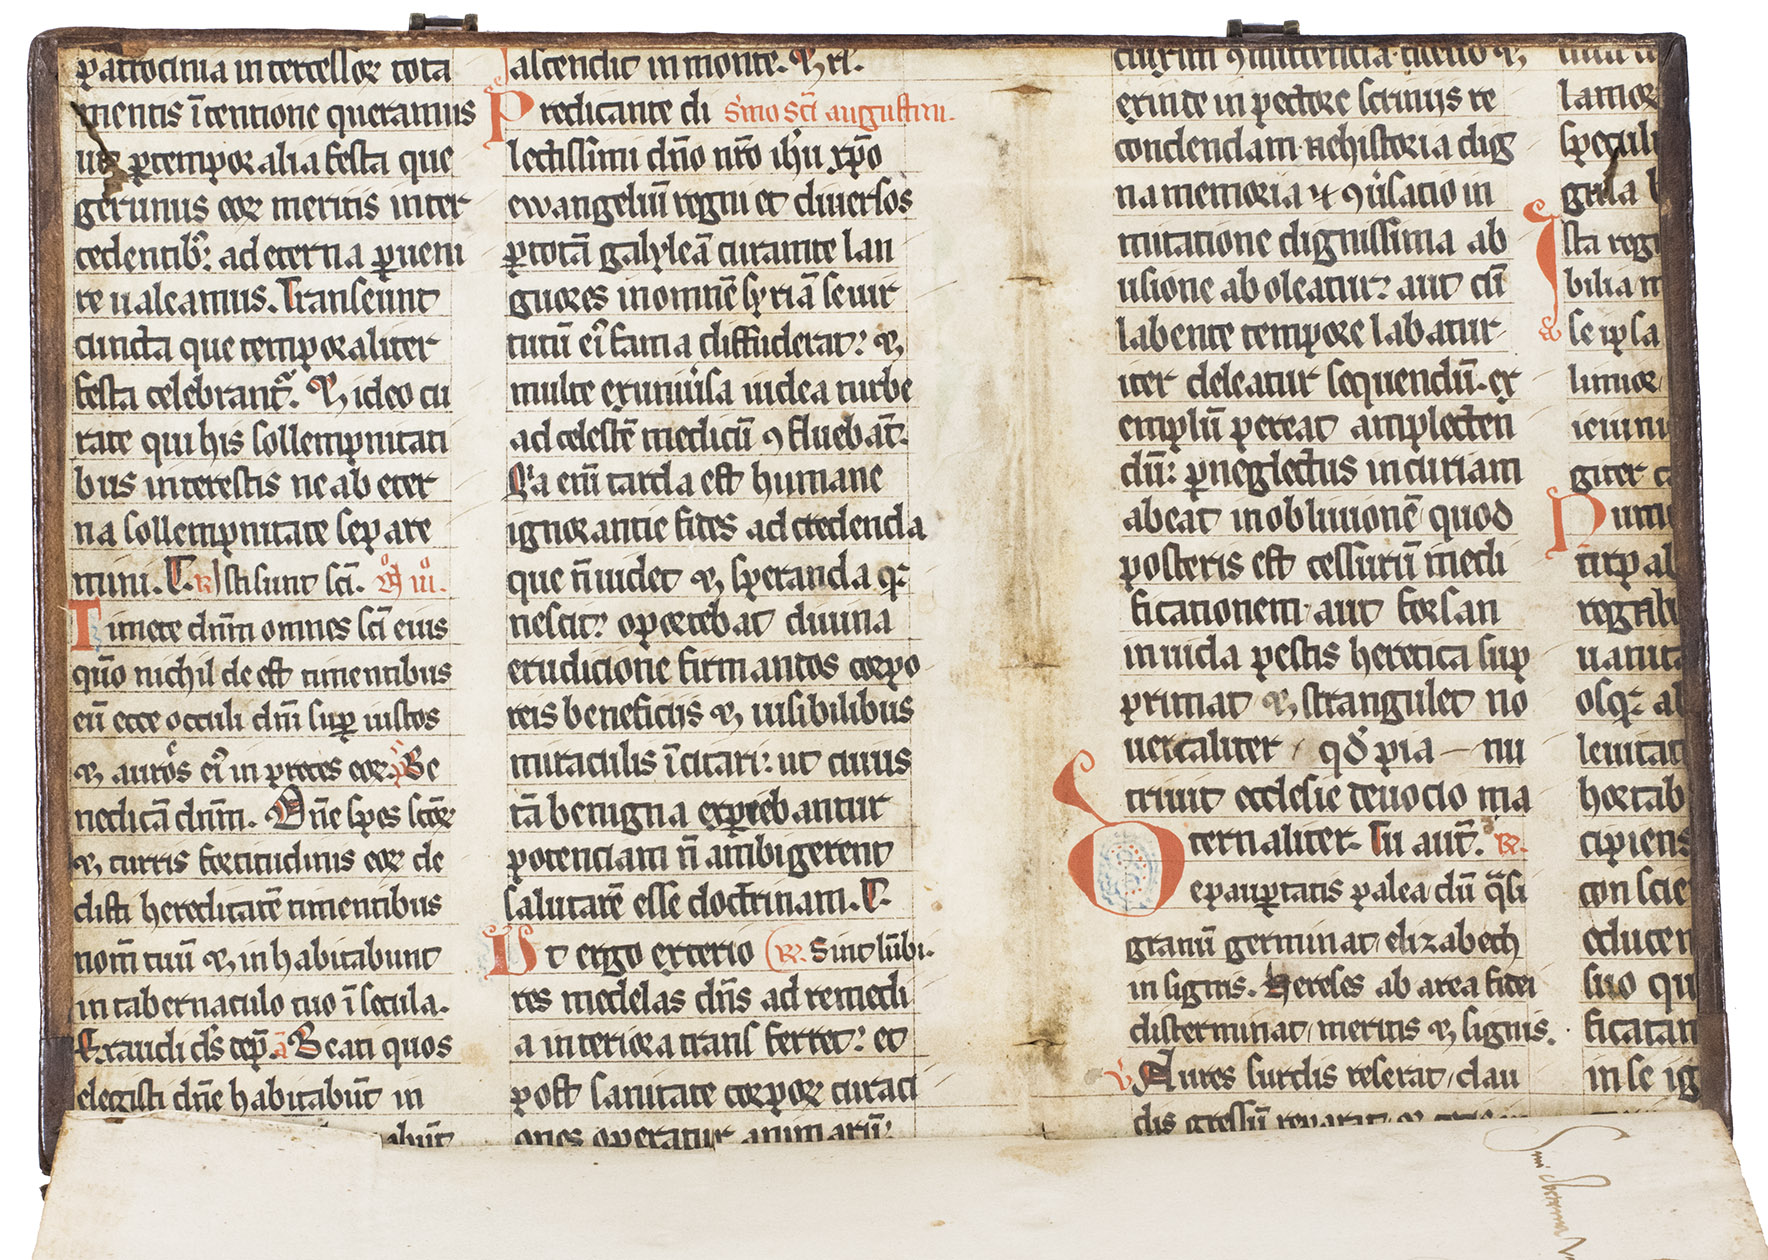 patrocinia intercessoꝝ tota
mentis ītentione queramus
ut ꝑ temporalia festa que
gerimus eoꝝ meritis inter
cedentibꝰ: ad eterna ꝑueni
re ualeamus. Transeunt
cuncta que temporaliter
festa celebrant᷑. Et ideo cu
rate qui his sollempnitati
bus interestis ne ab eter
na sollempnitate separe
mini. T. R Isti sunt sci. Aº viº.
Timete dnm omnes sci eius
qm̄o nichil deest timentibus
eū ecce occuli dni sup iustos
⁊ aures eiꝰ in preces eoꝝ. p̄ Be
nedicā dnm. Dn̄e spes sctoꝝ
⁊ turris fortitudinis eoꝝ de
disti hereditatē timentibus
nom̄ tuū ⁊ inhabitabunt
in tabernaculo tuo ī secula.
Exaudi ds̄ tep̄. ā Beati quos
elegisti dn̄e habitabūt in
abūt
ascendit in monte. Et rl̄.
Predicante di s̄mo sc̄i augustini.
lectissimi dn̄o nr̄o ihu xp̄o
ewangeliū regni et diuersos
ꝑ totā galyleā curante lan
guores in omnē syriā se uir
tutū eiꝰ fama diffuderat: ⁊
multe ex uniūsa iudea turbe
ad celestē medicū ꝯfluebāt.
Qa enī tarda est humane
ignorantie fides ad credenda
que n̄ uidet ⁊ speranda qꝫ
nescit: oportebat diuina
erudicione firmantos corpo
reis beneficiis ⁊ uisibilibus
miraculis īcitari: ut cuius
tā benigna exꝑiebantur
potenciam n̄ ambigerent
salutarē esse doctrinam. T.
Ut ergo exterio (R. Sint lūbi.
res medelas dn̄s ad remedi
a interiora transferret: et
post sanitate corpoꝝ curaci
ones operatur animarū:
exinde in pectore scriniis re
condendam. ne historia dig
na memoria ⁊ ꝯūsacio in
mitatione dignissima ab
usione aboleatur: aut cū
labente tempore labatur
iter deleatur sequendū. ex
emplū pereat amplecten
dū: ꝑ neglectus incuriam
abeat in obliuionē quod
posteris est cessurū medi
ficationem. aut forsan
inuida pestis heretica sup
primat ⁊ strangulet no
uercaliter qđ pia nu
triuit ecclesie deuocio ma
ternaliter. Tu aut̄. R.
De pauꝑtatis palea dū qͣsi
granū germinat elizabech
in signis. Hereses ab area fidei
disterminat meritis ⁊ signis.
v̄ Aures surdis reserat clau
dis gressū reparat ⁊
lamor
specul
gula
Ista reg
bilia m
se ipsa
regibu
hortab
cipiens
con scie
educen
suo qu
ficatan
in se ig